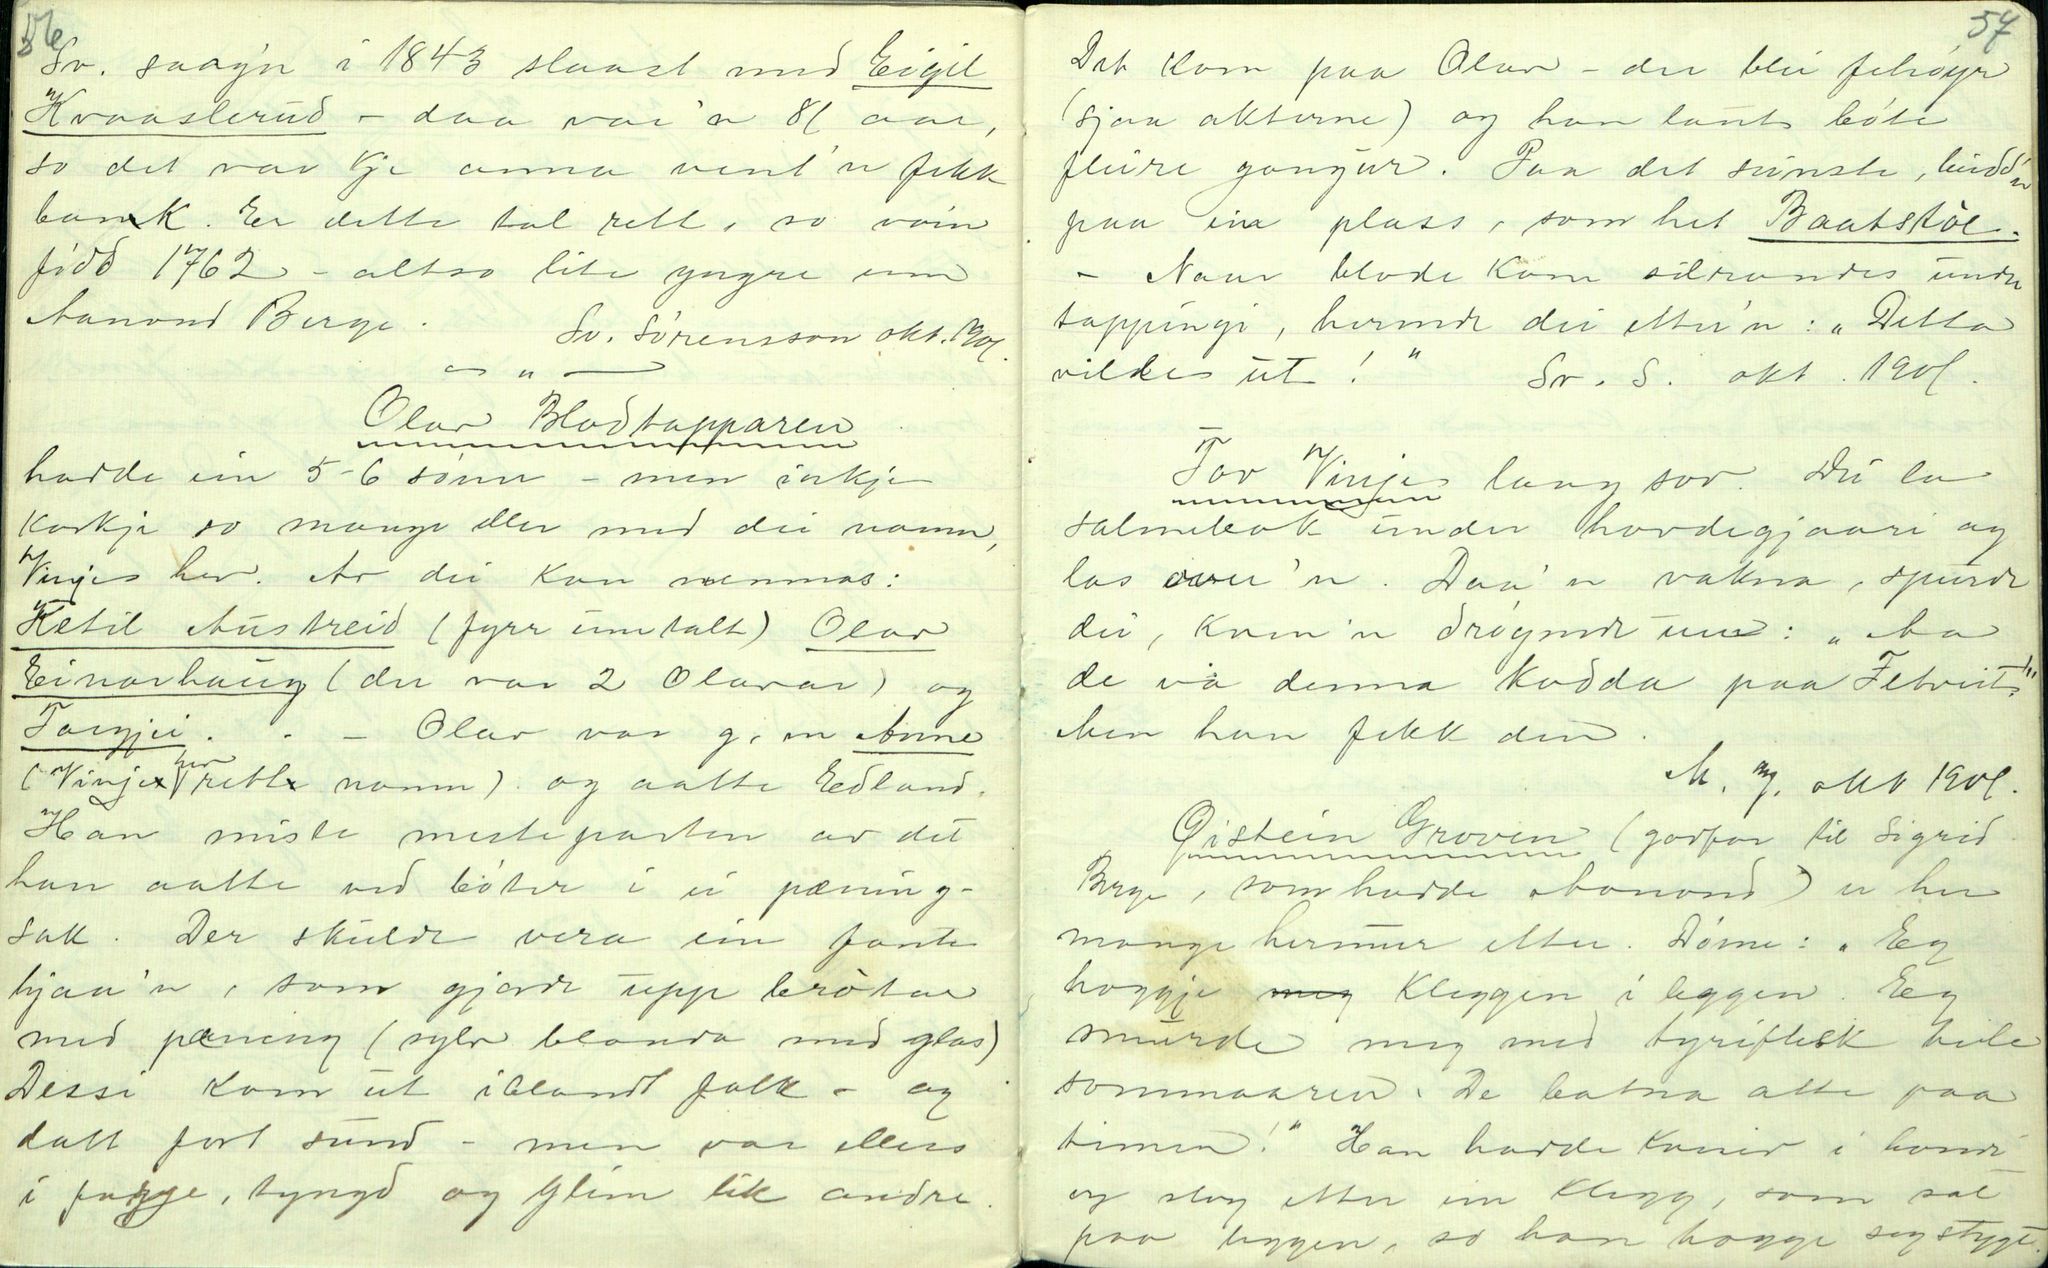 56
Sv. saag'n i 1843 slaast med Eigil
Kvaaslerud - daa var'n 81 aar,
so det var kje anna vent'n fekk
bank. Er dette tal rett, so va'n
født 1762 - altso lite yngre enn
Aanond Berge.
Sv. Sørensson okt. 1901.
— " —
Olav Blodtapparen
hadde ein 5-6 søner - men inkje
korkje so mange eller med dei namn,
Vinjes hev. Av dei kan nemnas:
Ketil Austreid (fyrr umtalt) Olav
Einarhaug (der var 2 Olavar) og
Torgjei. - Olav var g. m Anne
(Vinje hev rett namn) og aatte Edland.
Han miste mesteparten av det
han aatte ved bøter i ei pæning-
sak. Der skulde vera ein fante
hjaa'n, som gjorde upp brøtar
med pæning (sylv blanda med glas)
Dessi kom ut iblandt folk - og
datt fort sund - men var ellers
i farge, tyngd og glim lik andre.
57
Det kom paa Olav - der blei fehøyr
(sjaa akterne) og han laut bøte
fleire gongur. Paa det sunste, budd'n
paa ein plass, som het Baatstøl.
- Naar blode kom silrandes under
tappingi, hermde dei etter'n: „Detta
vilkes ut!" Sv. S. okt. 1901.
Tov Vinjes lang sov. Dei la
salmebok under hovdegjæri og
las over'n. Daa'n vakna, spurde
dei, kom'n drøgmde um: „Aa
de va denna kodda paa Fetveit"
Men han fekk den.
M. M. okt 1901.
Øistein Groven (godfar til Sigrid
Berge, som hadde Aanond) er her
mange hermur etter. Døme: „Eg
hoggje meg kleggen i leggen. Eg
smurde meg med tyriflesk heile
sommaaren. De batna atte paa
timen!" Han hadde kniv i hondi
og slog etter ein klegg, som sat
paa leggen, so han hogge seg stygt.